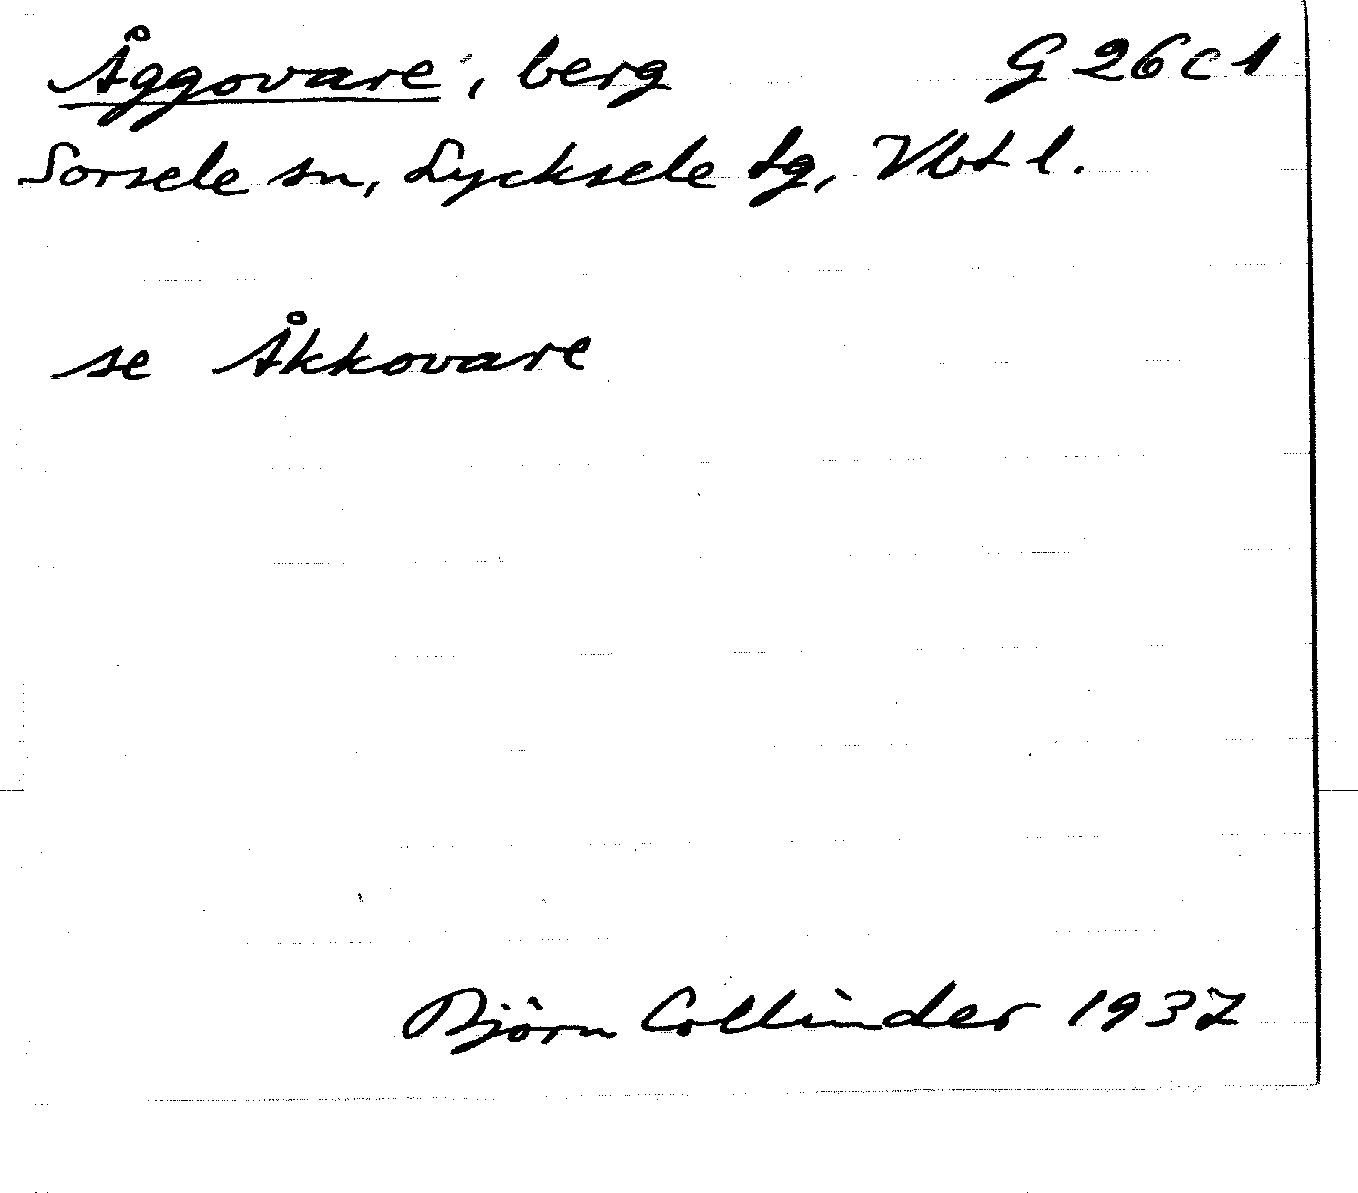 Åggovare, berg G 26 c 1
Sorsele sn, Lycksele lg, Vbt l.
se Åkkovare
Björn Collinder 1937